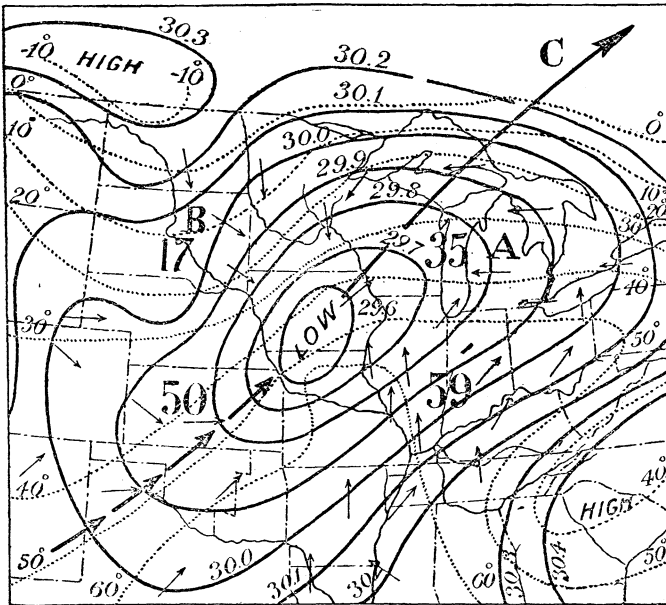 30.3
-10°
HIGH
-10°
0°
C
30.2
30.1
0°
10°
30.0
29.9
29.8
10°
20°
20°
30°
B
17
29.7
35
A
40°
29.6
30°
LOW
50°
50
59
40°
HIGH
40°
50°
50°
60°
30.0
30.1
30
60°
30.3
30.4